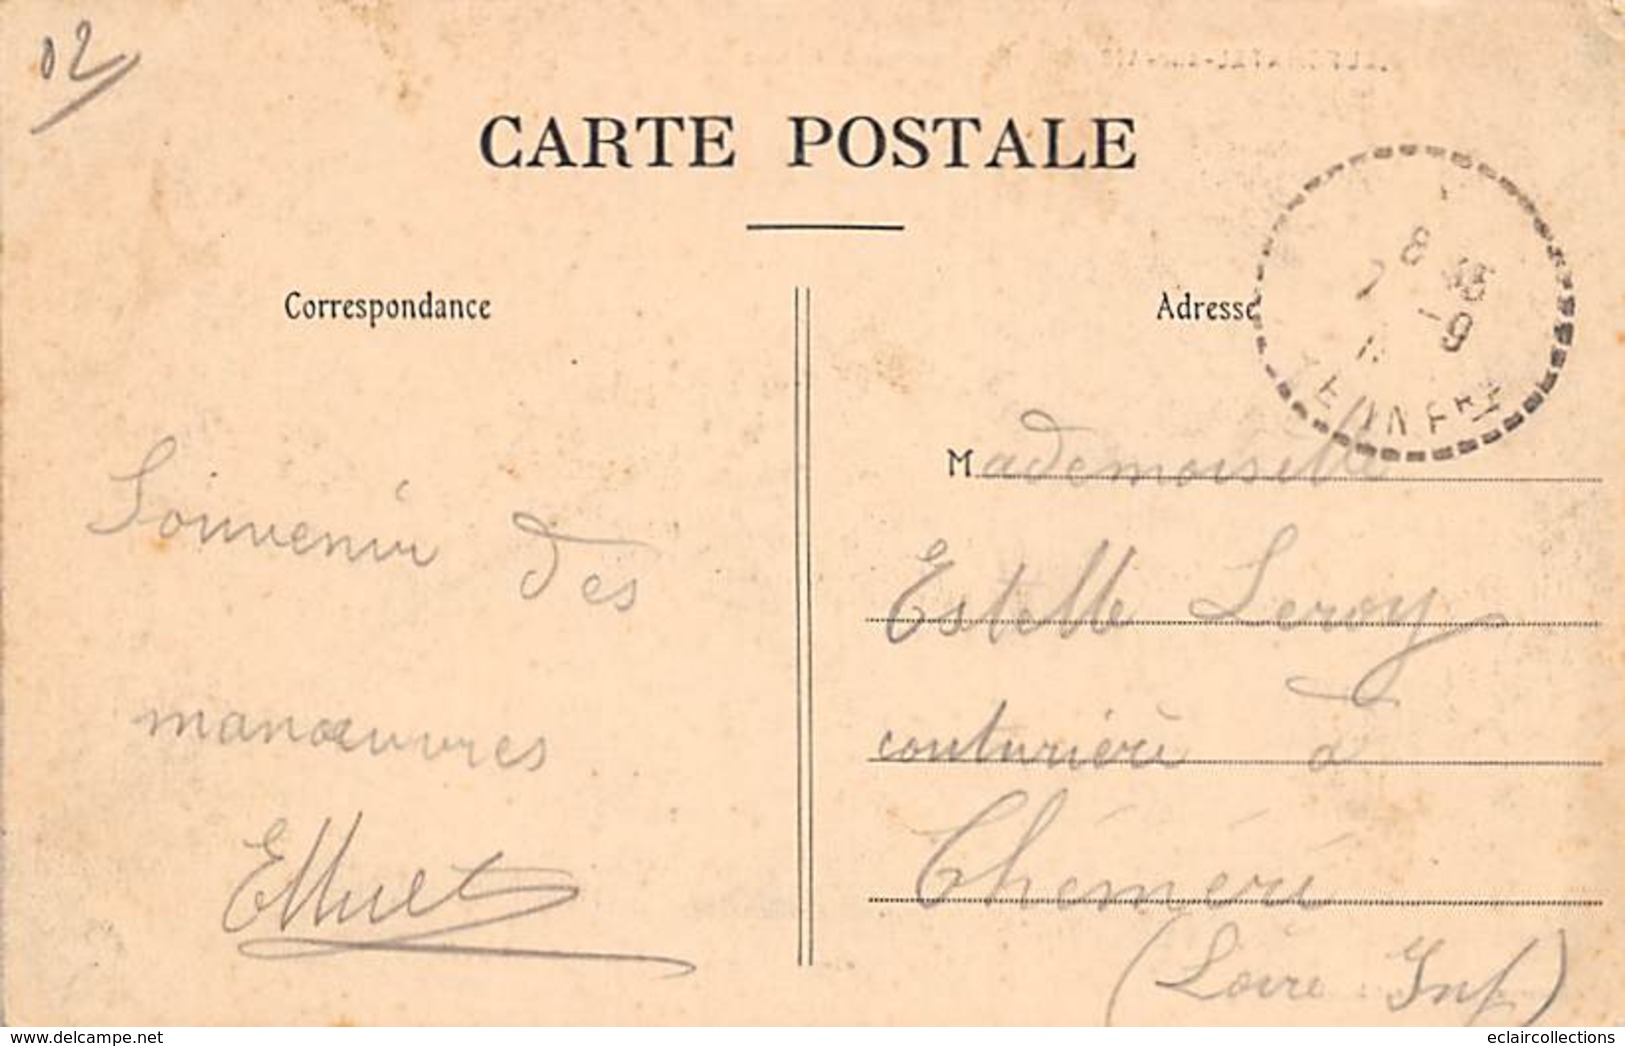 02
CARTE POSTALE
Correspondance
Adresse
8 35
7 -9
Souvenir des
manœuvres
EHuet
Mademoiselle
Estelle Leroy
couturière à
Chéméré
(Loire Inf)
www.delcampe.net
eclaircollections